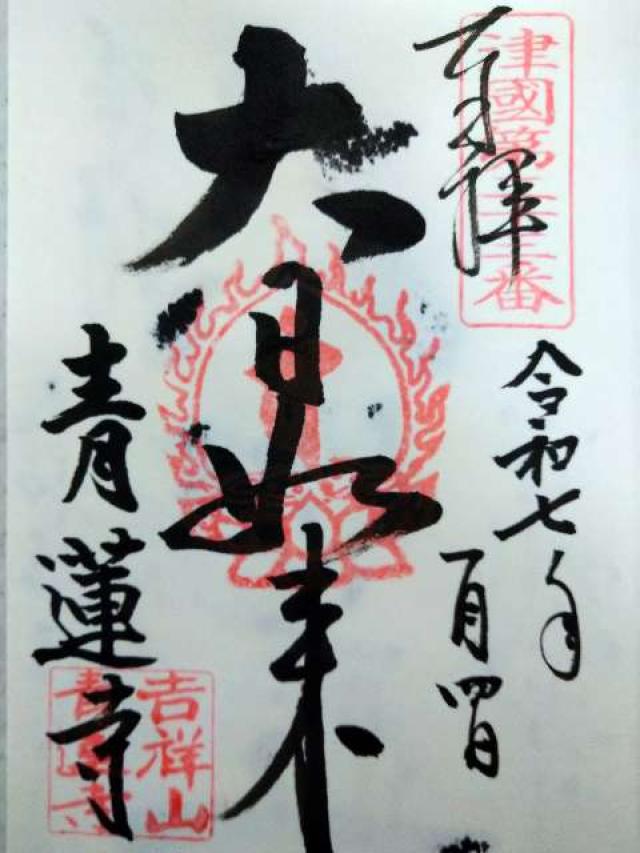 奉拝
津國第
番
令和七年
一月四日
大日如来
青蓮寺
吉祥山
青蓮寺